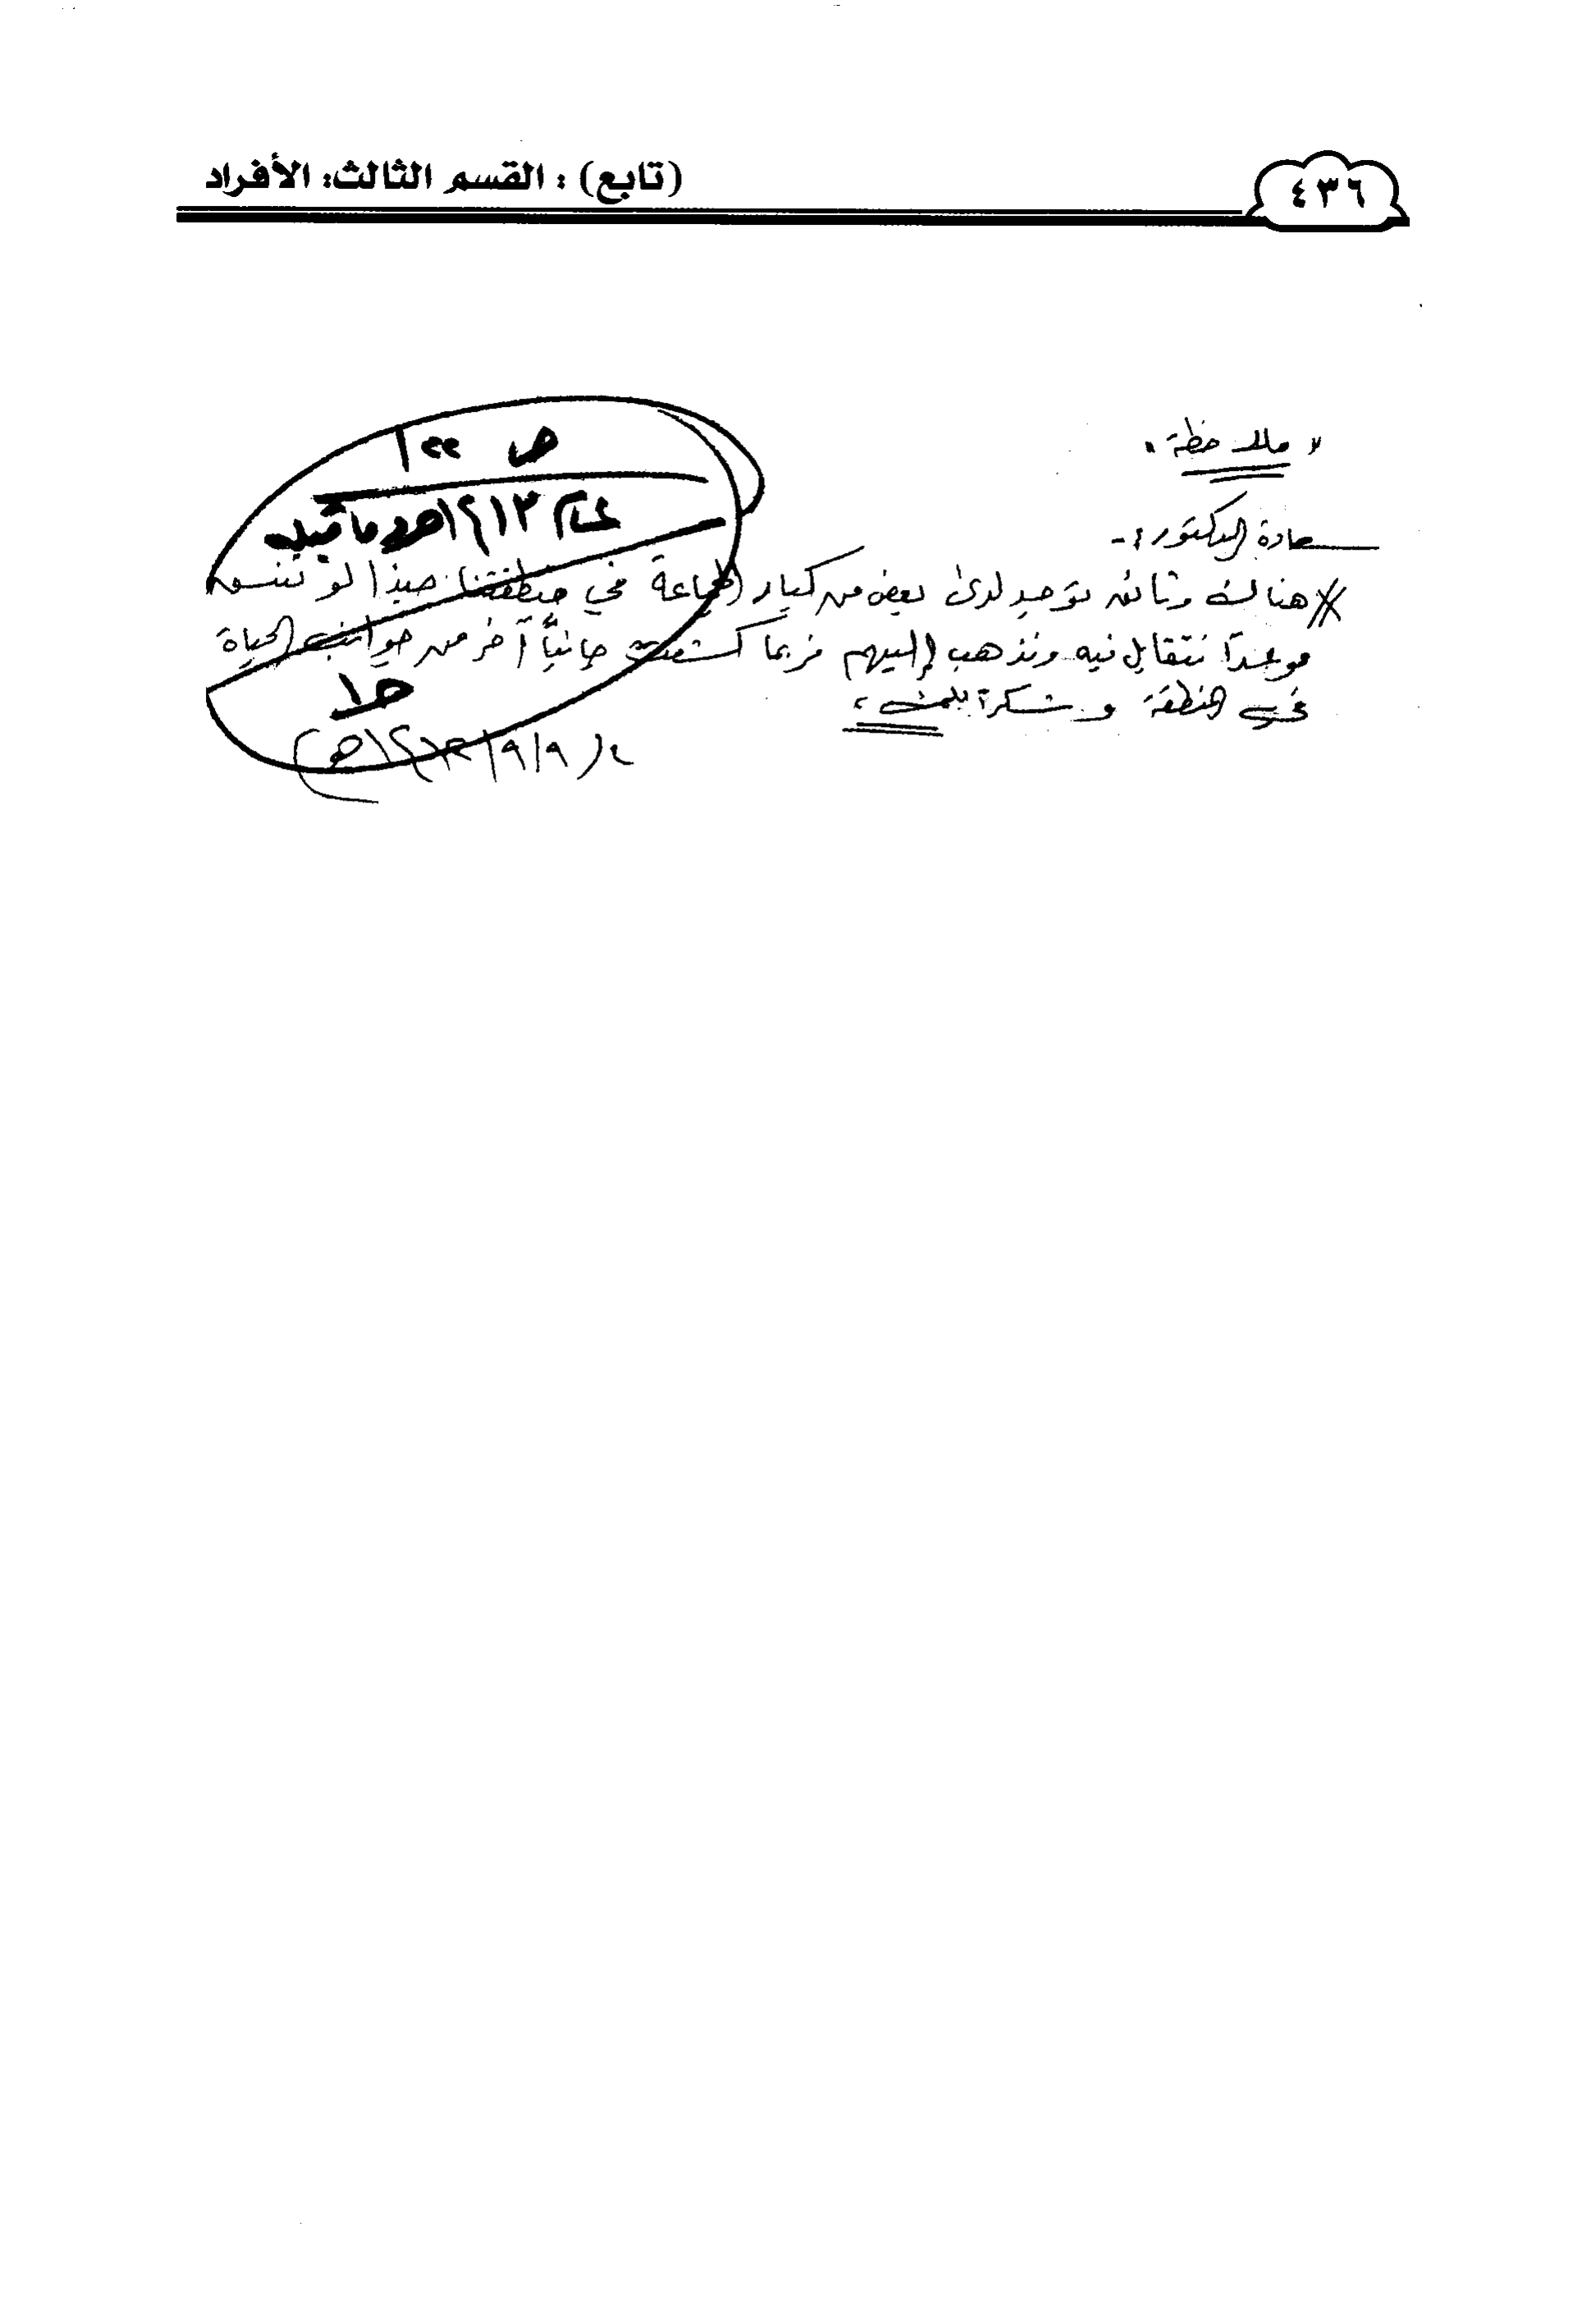 ٤٣٦
(تابع) : القسم الثالث: الأفراد
" ملاحظة "
ص ١٢٢
سعادة الدكتور :-
عام ١٤١٣هـ وما قبله
// هنالك وثائق توجد لدى بعض من كبار الجماعة في منطقتنا حبذا لو ننسق
موعداً نتقابل فيه ونذهب إليهم فربما كشفت جانباً آخر من جوانب الحياة
في المنطقة وشكراً لكم ،،
ح١
(٩/٩/١٤١٣هـ)